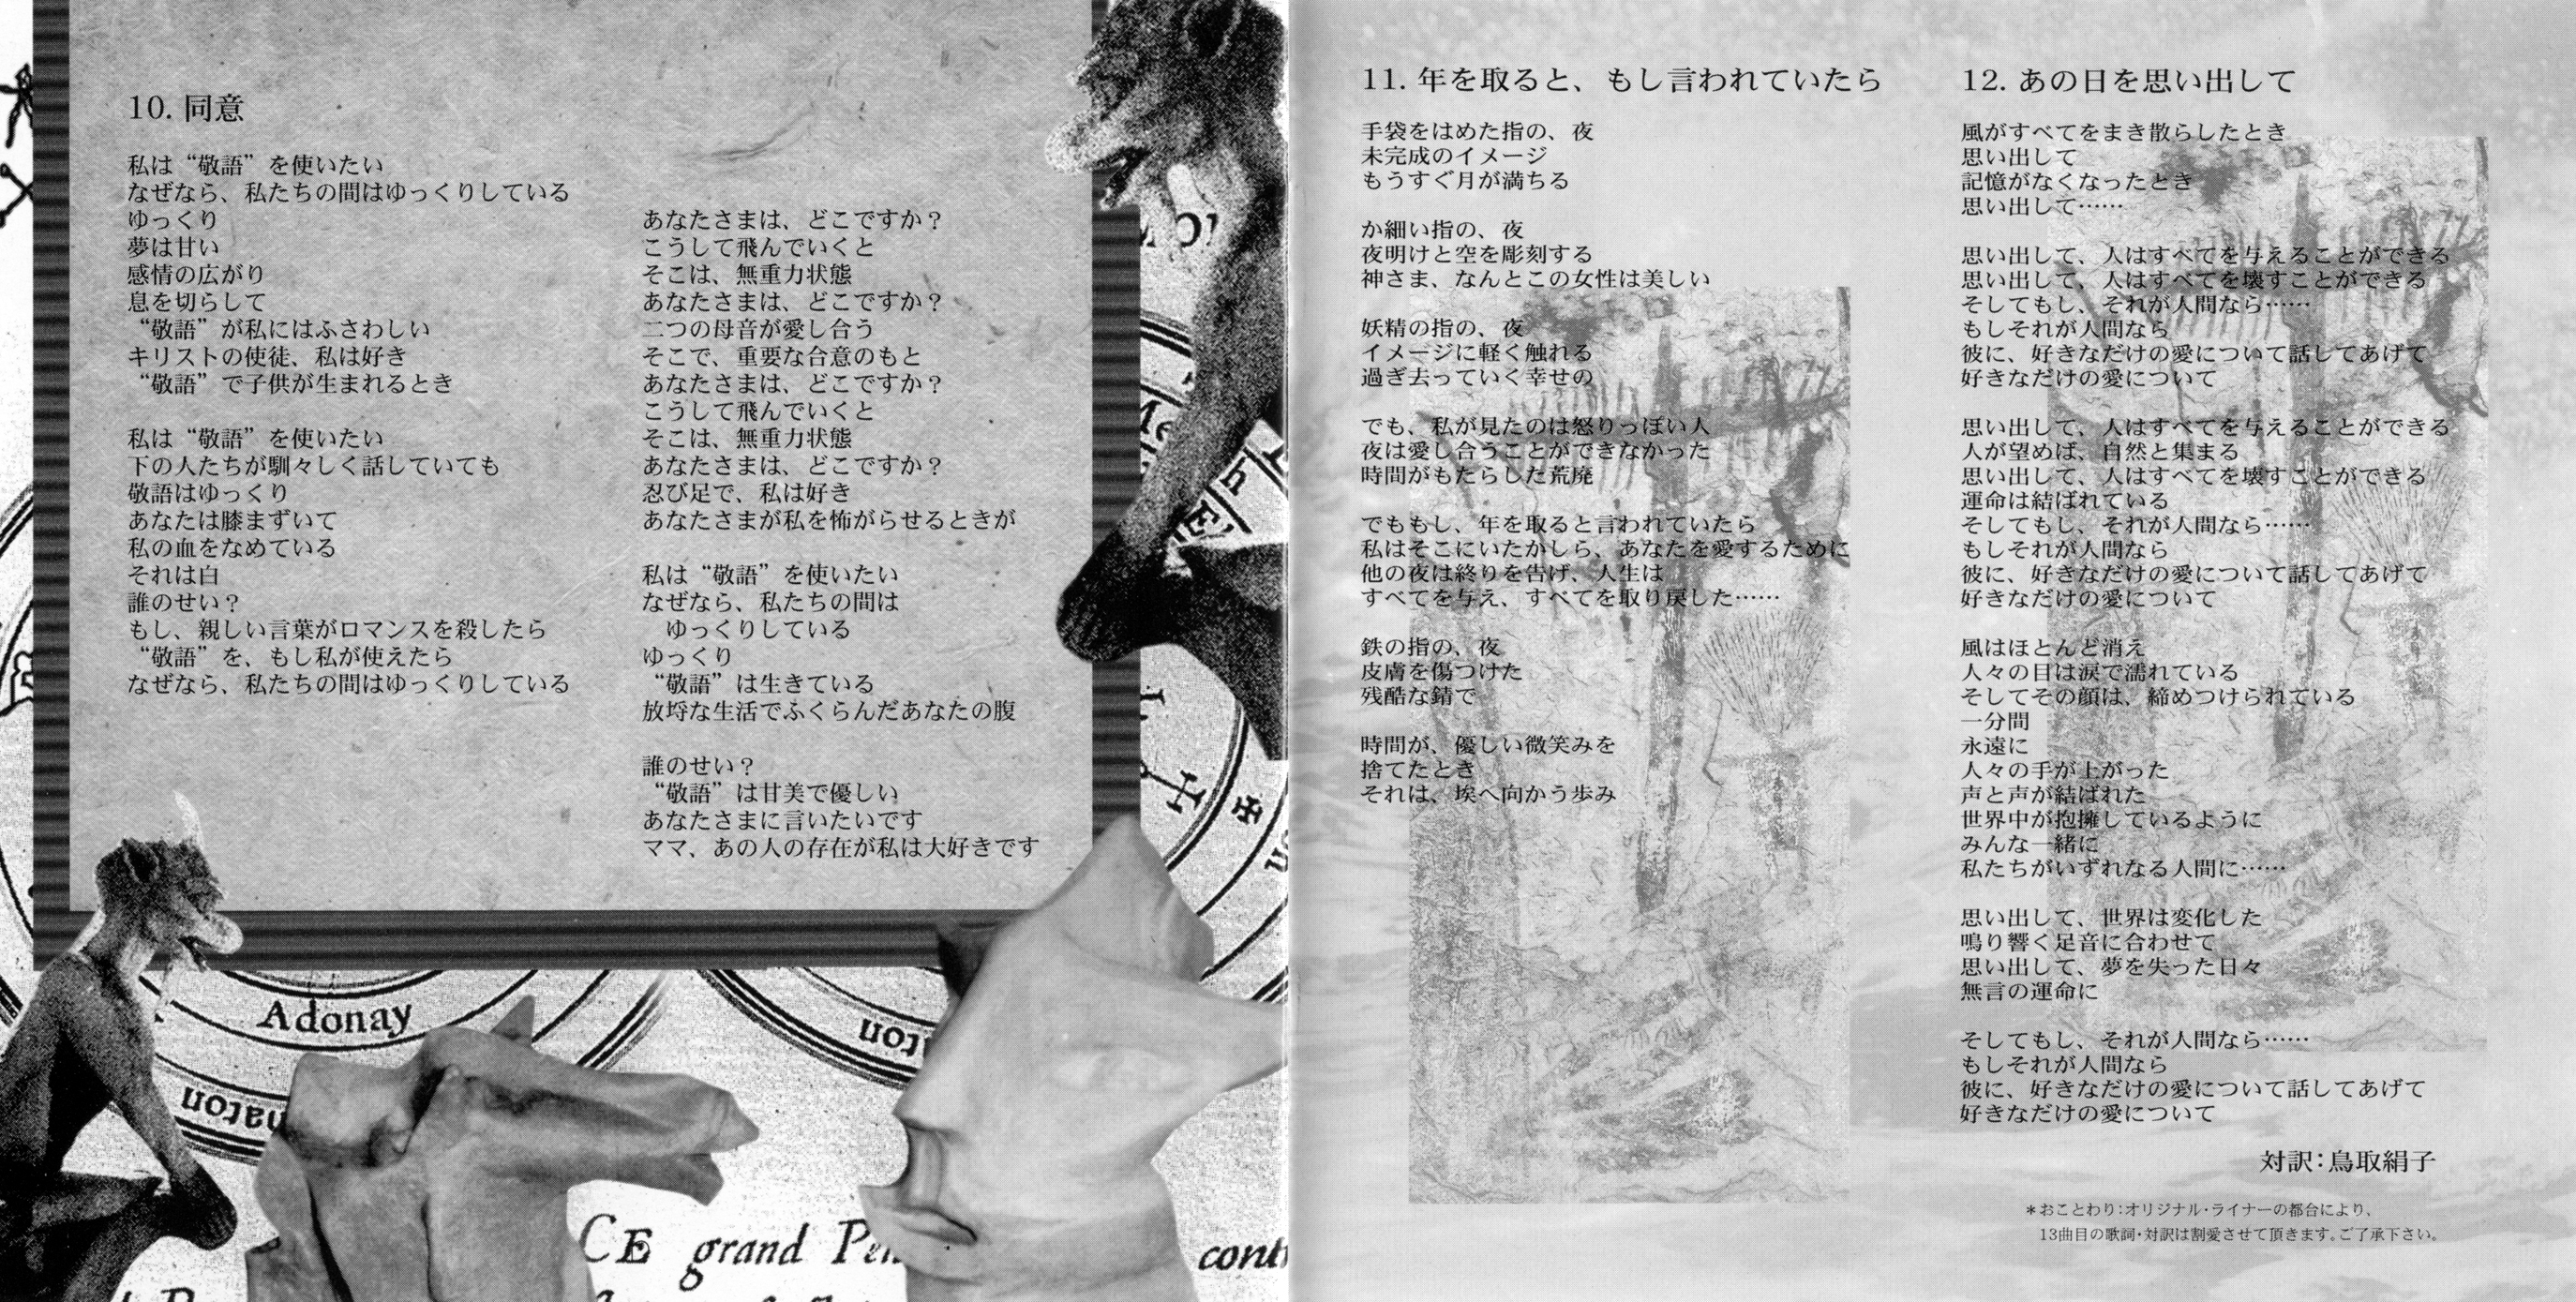 10. 同意
私は“敬語”を使いたい
なぜなら、私たちの間はゆっくりしている
ゆっくり
夢は甘い
感情の広がり
息を切らして
“敬語”が私にはふさわしい
キリストの使徒、私は好き
“敬語”で子供が生まれるとき
私は“敬語”を使いたい
下の人たちが馴々しく話していても
敬語はゆっくり
あなたは膝まずいて
私の血をなめている
それは白
誰のせい？
もし、親しい言葉がロマンスを殺したら
“敬語”を、もし私が使えたら
なぜなら、私たちの間はゆっくりしている
あなたさまは、どこですか？
こうして飛んでいくと
そこは、無重力状態
あなたさまは、どこですか？
二つの母音が愛し合う
そこで、重要な合意のもと
あなたさまは、どこですか？
こうして飛んでいくと
そこは、無重力状態
あなたさまは、どこですか？
忍び足で、私は好き
あなたさまが私を怖がらせるときが
私は“敬語”を使いたい
なぜなら、私たちの間は
ゆっくりしている
ゆっくり
“敬語”は生きている
放埒な生活でふくらんだあなたの腹
誰のせい？
“敬語”は甘美で優しい
あなたさまに言いたいです
ママ、あの人の存在が私は大好きです
Adonay
CE grand Pen
cont
11. 年を取ると、もし言われていたら
手袋をはめた指の、夜
未完成のイメージ
もうすぐ月が満ちる
か細い指の、夜
夜明けと空を彫刻する
神さま、なんとこの女性は美しい
妖精の指の、夜
イメージに軽く触れる
過ぎ去っていく幸せの
でも、私が見たのは怒りっぽい人
夜は愛し合うことができなかった
時間がもたらした荒廃
でももし、年を取ると言われていたら
私はそこにいたかしら、あなたを愛するために
他の夜は終りを告げ、人生は
すべてを与え、すべてを取り戻した……
鉄の指の、夜
皮膚を傷つけた
残酷な錆で
時間が、優しい微笑みを
捨てたとき
それは、埃へ向かう歩み
12. あの日を思い出して
風がすべてをまき散らしたとき
思い出して
記憶がなくなったとき
思い出して……
思い出して、人はすべてを与えることができる
思い出して、人はすべてを壊すことができる
そしてもし、それが人間なら……
もしそれが人間なら
彼に、好きなだけの愛について話してあげて
好きなだけの愛について
思い出して、人はすべてを与えることができる
人が望めば、自然と集まる
思い出して、人はすべてを壊すことができる
運命は結ばれている
そしてもし、それが人間なら……
もしそれが人間なら
彼に、好きなだけの愛について話してあげて
好きなだけの愛について
風はほとんど消え
人々の目は涙で濡れている
そしてその顔は、締めつけられている
一分間
永遠に
人々の手が上がった
声と声が結ばれた
世界中が抱擁しているように
みんな一緒に
私たちがいずれなる人間に……
思い出して、世界は変化した
鳴り響く足音に合わせて
思い出して、夢を失った日々
無言の運命に
そしてもし、それが人間なら……
もしそれが人間なら
彼に、好きなだけの愛について話してあげて
好きなだけの愛について
対訳：鳥取絹子
＊おことわり：オリジナル・ライナーの都合により、
13曲目の歌詞・対訳は割愛させて頂きます。ご了承下さい。